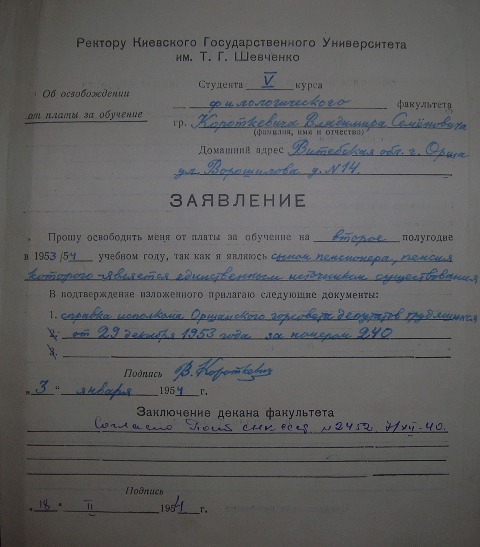 Ректору Киевского Государственного Университета
им. Т. Г. Шевченко
Студента V курса
Об освобождении
от платы за обучение
филологического факультета
гр. Короткевича Владимира Семёновича
(фамилия, имя и отчество)
Домашний адрес Витебская обл. г. Орша
ул. Ворошилова д. №14.
ЗАЯВЛЕНИЕ
Прошу освободить меня от платы за обучение на второе полугодие
в 1953/54 учебном году, так как я являюсь сыном пенсионера, пенсия
которого является единственным источником существования
В подтверждение изложенного прилагаю следующие документы:
1. справка исполкома Оршанского горсовета депутатов трудящихся
2. от 29 декабря 1953 года за номером 240
3.
Подпись В. Короткевич
"3" января 1954 г.
Заключение декана факультета
Согласно Пост СНК СССР №2452 7/XII-40.
Подпись
"18" II 1954 г.